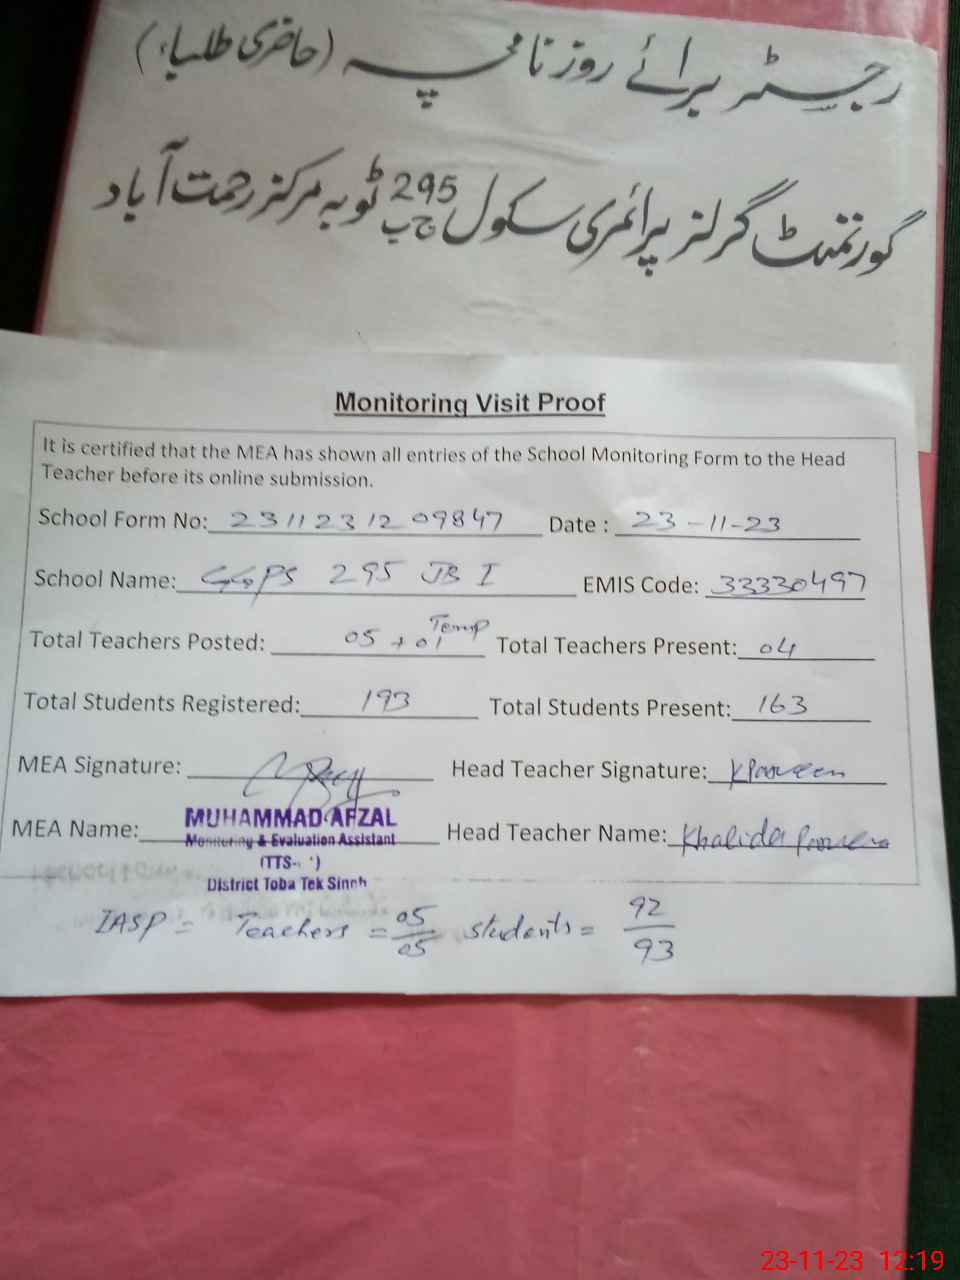 رجسٹر برائے روزنامچہ (حاضری طلباء)
گورنمنٹ گرلز پرائمری سکول 295 ج ب ٹوبہ مرکز رحمت آباد
Monitoring Visit Proof
It is certified that the MEA has shown all entries of the School Monitoring Form to the Head
Teacher before its online submission.
School Form No: 23112312 09847 Date : 23-11-23
School Name: GGPS 295 JB I EMIS Code: 33330497
Total Teachers Posted: 05 + 01 Temp Total Teachers Present: 04
Total Students Registered: 193 Total Students Present: 163
MEA Signature: Head Teacher Signature: KParveen
MEA Name: MUHAMMAD AFZAL Head Teacher Name: Khalida Parveen
Monitoring & Evaluation Assistant
(TTS- )
District Toba Tek Singh
IASP = Teachers = 05/05 students = 92/93
23-11-23 12:19